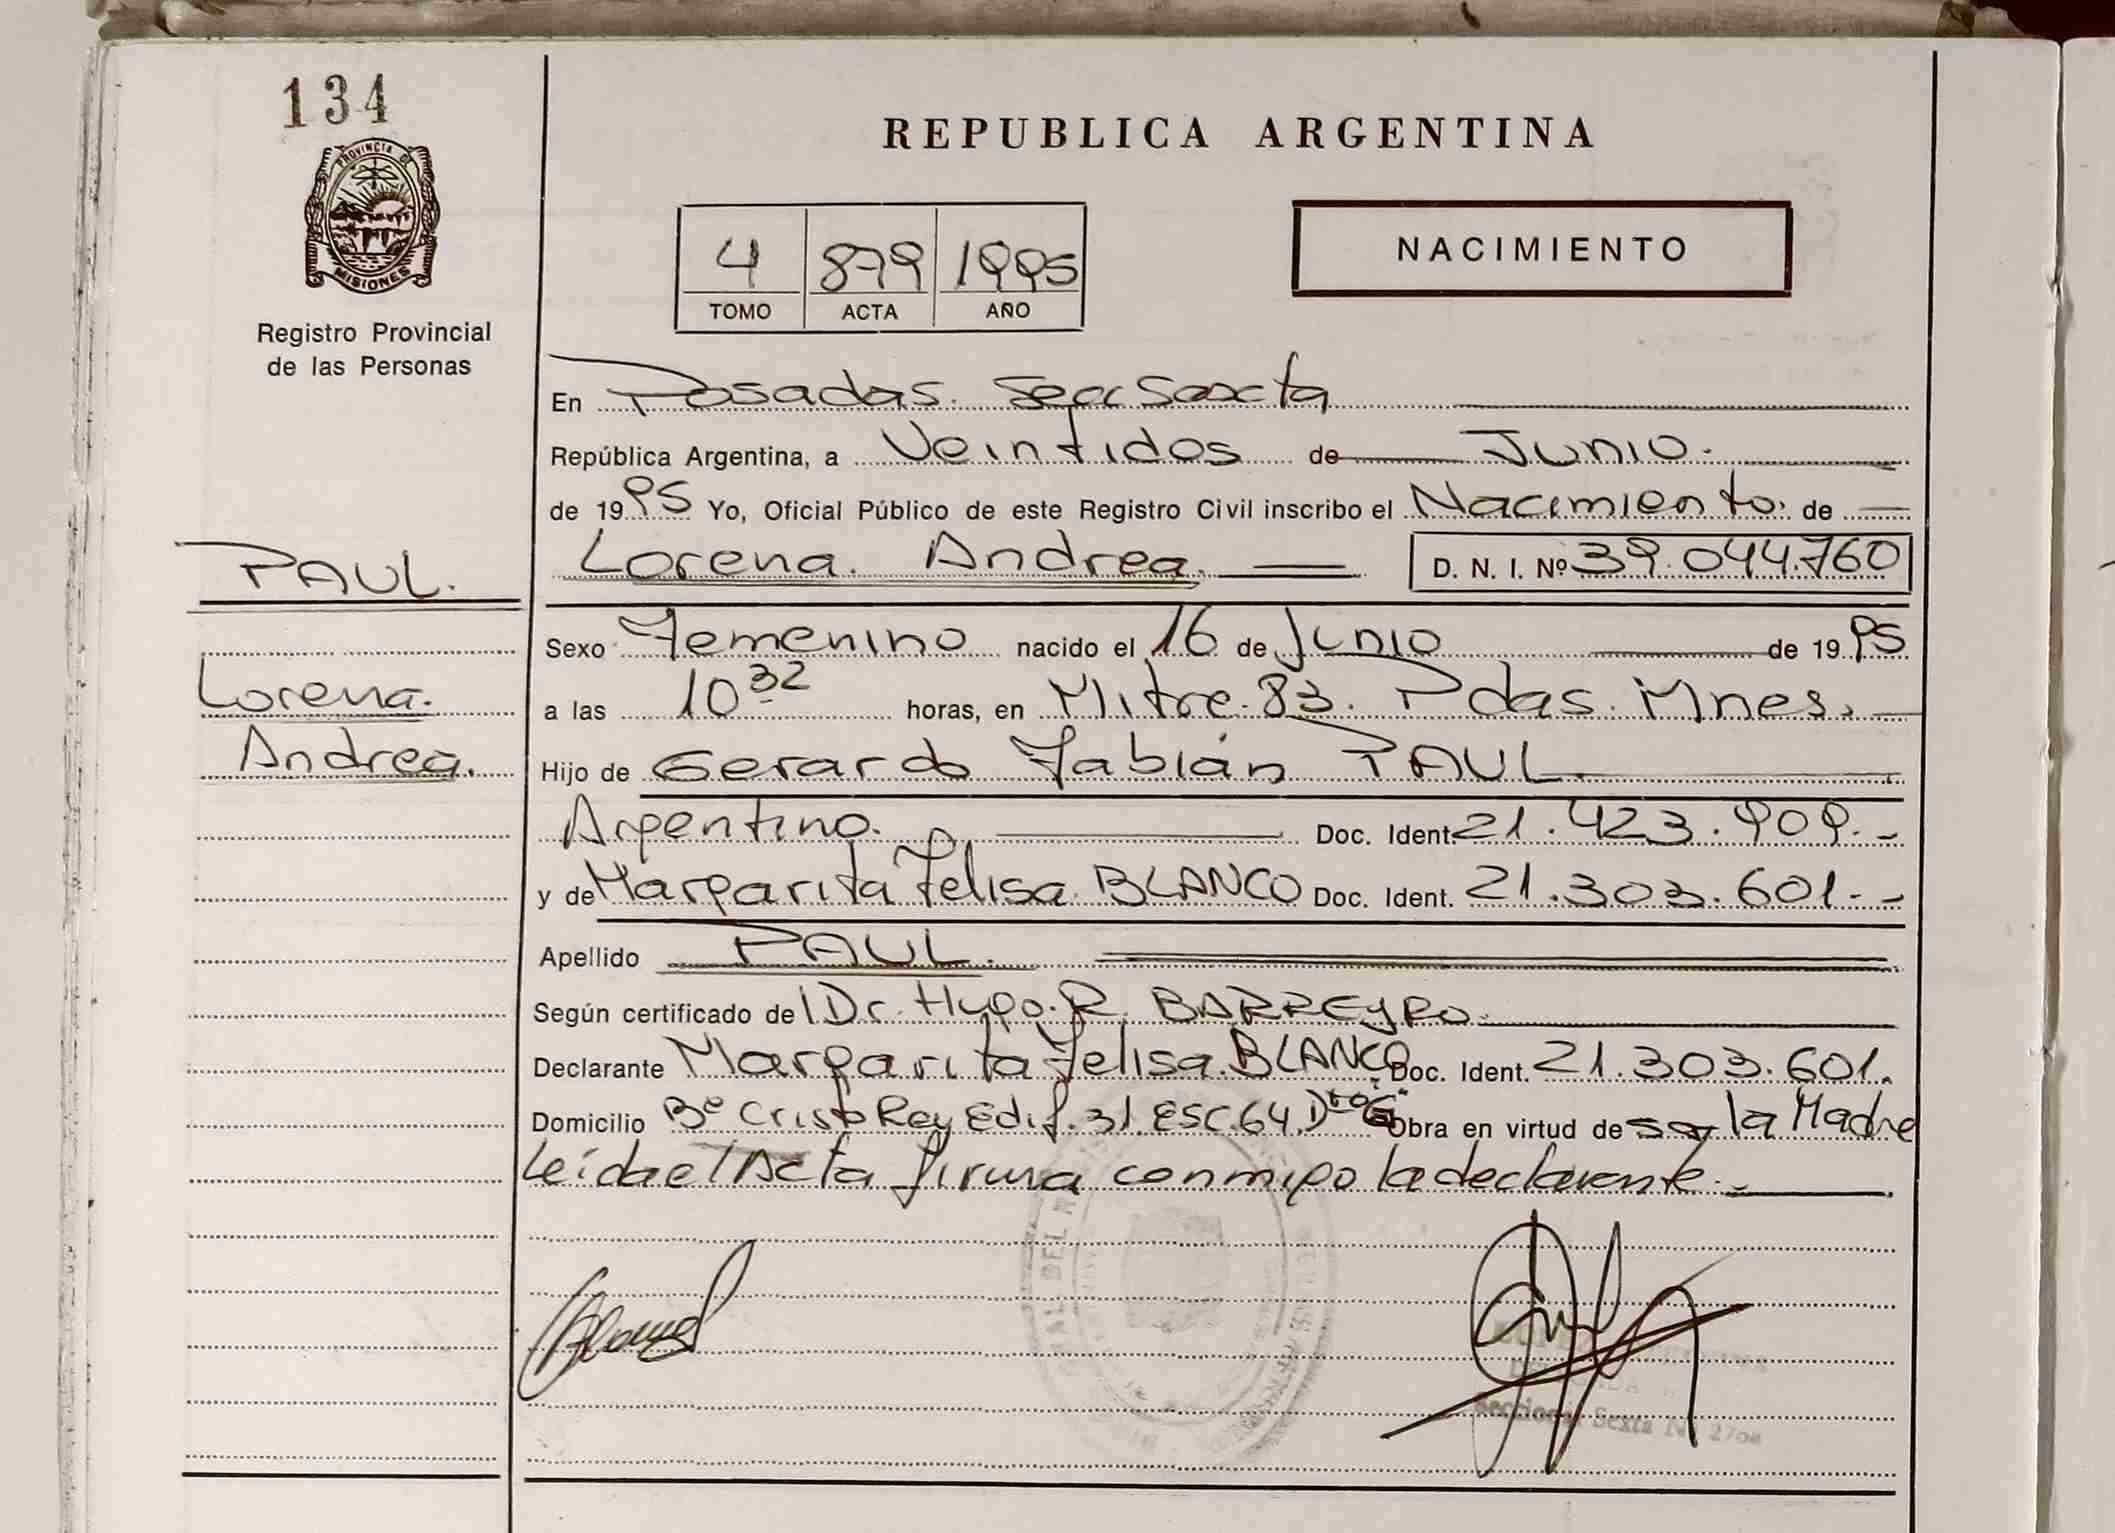 134
PROVINCIA DE
MISIONES
Registro Provincial
de las Personas
REPUBLICA ARGENTINA
4 879 1995
TOMO ACTA AÑO
NACIMIENTO
En Posadas. Secc Sexta
República Argentina, a Veintidos de Junio.
de 1995 Yo, Oficial Público de este Registro Civil inscribo el Nacimiento. de
PAUL. Lorena. Andrea. D. N. I. Nº 39.044.760
Sexo Femenino nacido el 16 de Junio de 1995
Lorena. a las 10 32 horas, en Mitre. 83. Pdas. Mnes.
Andrea. Hijo de Gerardo Fabián PAUL.
Argentino. Doc. Ident. 21.423.909.-
y de Margarita Felisa. BLANCO Doc. Ident. 21.303.601.-
Apellido PAUL.
Según certificado de l Dr. Hugo. R. BARREYRO.
Declarante Margarita Felisa. BLANCO Doc. Ident. 21.303.601.
Domicilio Bº Cristo Rey Edif. 31. ESC. 64. Dto "G" Obra en virtud de ser la Madre
Leída el Acta firma conmigo la declarante.-
Seccional Sexta